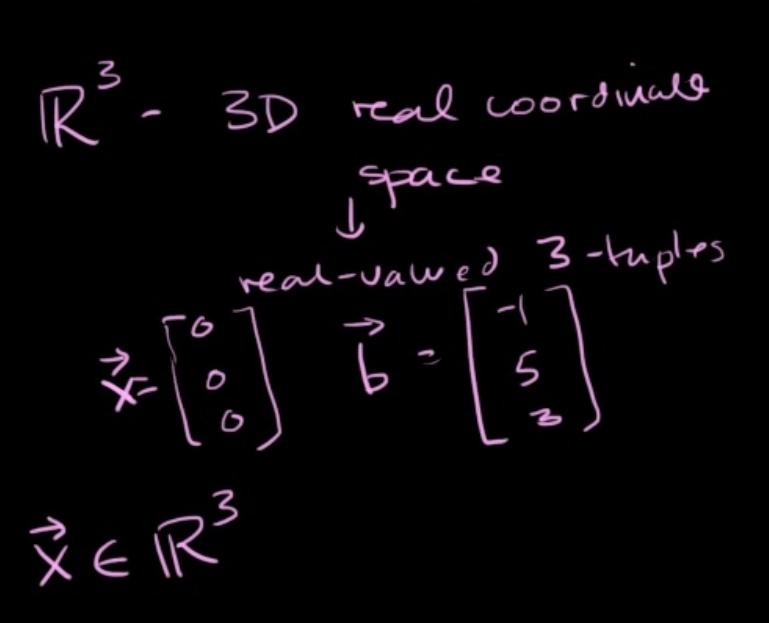 ℝ³ - 3D real coordinate
space
↓
real-valued 3-tuples
x⃗ = [0 0 0] b⃗ = [-1 5 3]
x⃗ ∈ ℝ³